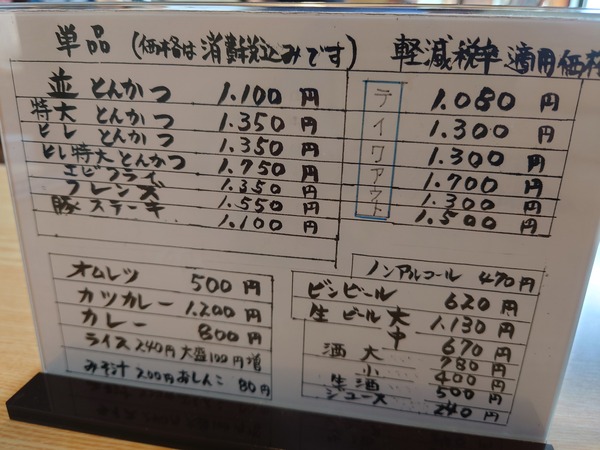 単品 (価格は消費税込みです) 軽減税率適用価格
並とんかつ 1.100円 1.080円
特大とんかつ 1.350円 1.300円
ヒレとんかつ 1.350円 1.300円
ヒレ特大とんかつ 1.750円 1.700円
エビフライ 1.350円 1.300円
フレンズ 1.550円 1.500円
豚ステーキ 1.100円
テイクアウト
オムレツ 500円
カツカレー 1.200円
カレー 800円
ライス240円大盛100円増
みそ汁200円おしんこ80円
ノンアルコール 470円
ビンビール 620円
生ビール大 1,130円
中 670円
酒大 780円
小 400円
生酒 500円
ジュース 240円